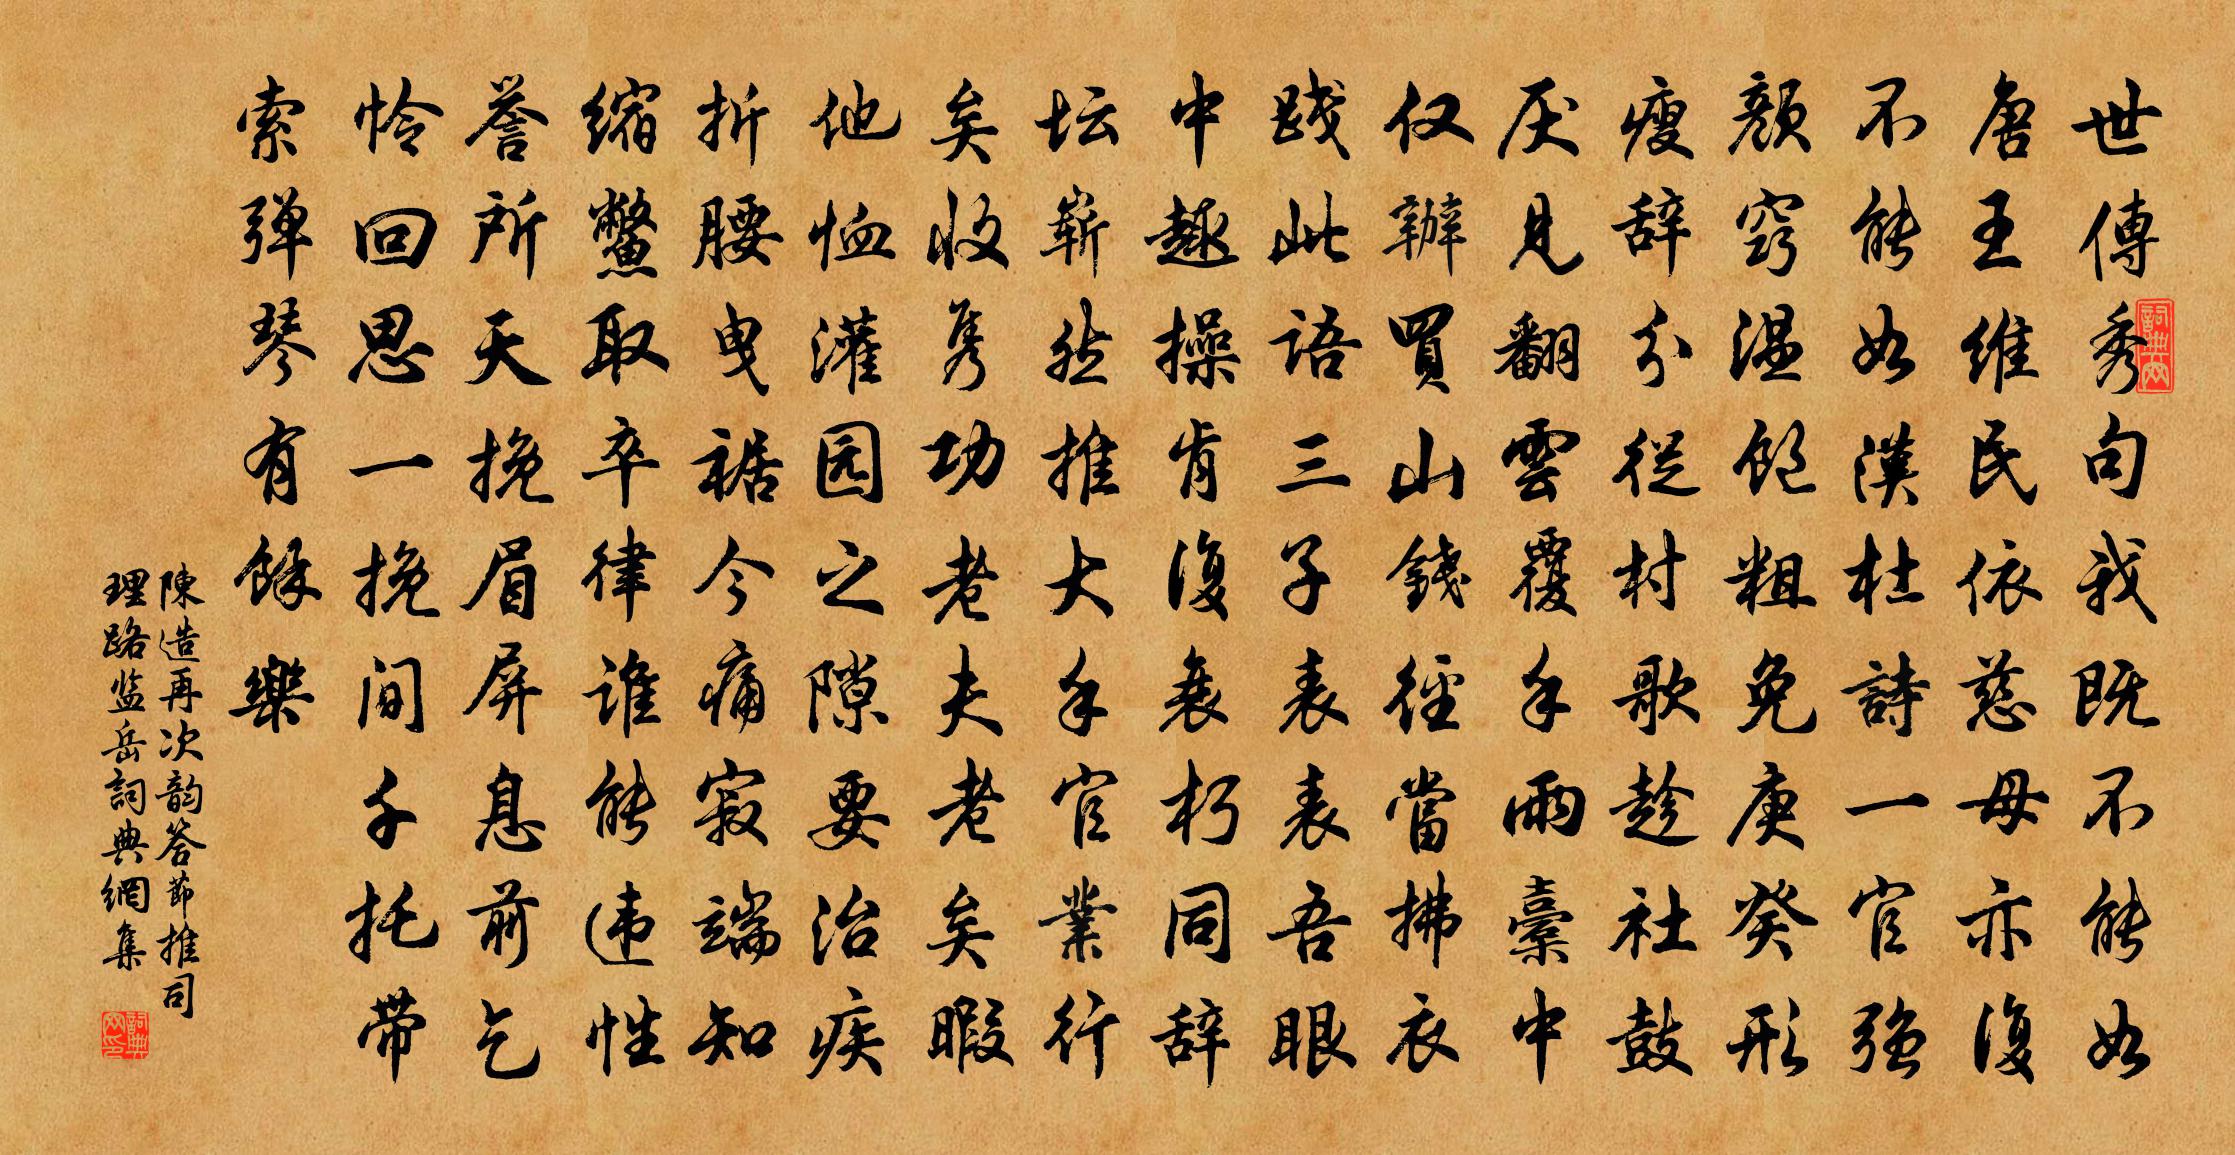 世傳秀句我既不能如
唐王维民依慈母亦復
不能如漢杜詩一官强
颜窍温飽粗免庚癸形
瘦辞分從村歌趁社鼓
厌見翻雲覆手雨橐中
仅辦買山錢徑當拂衣
践此語三子表表吾眼
中趣操肯復衰朽同辞
坛崭然推大手官業行
矣收隽功老夫老矣暇
他恤灌园之隙要治疾
折腰曳裾今痛寂端知
缩鳖取卒律谁能违性
誉所天挽眉屏息前乞
怜回思一挽間千托带
索弹琴有餘樂
陳造再次韵答節推司
理路监岳詞典網集
詞典网
詞典网印